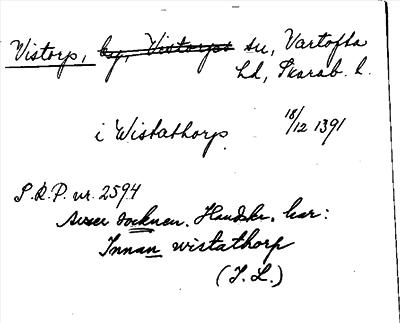 Vistorp, by, Vistorps sn, Vartofta
hd, Skarab. l.
i Wistathorp 18/12 1391
S.R.P. nr. 2594
Avser socknen. Handskr. har:
Innan wistathorp
(I. L.)